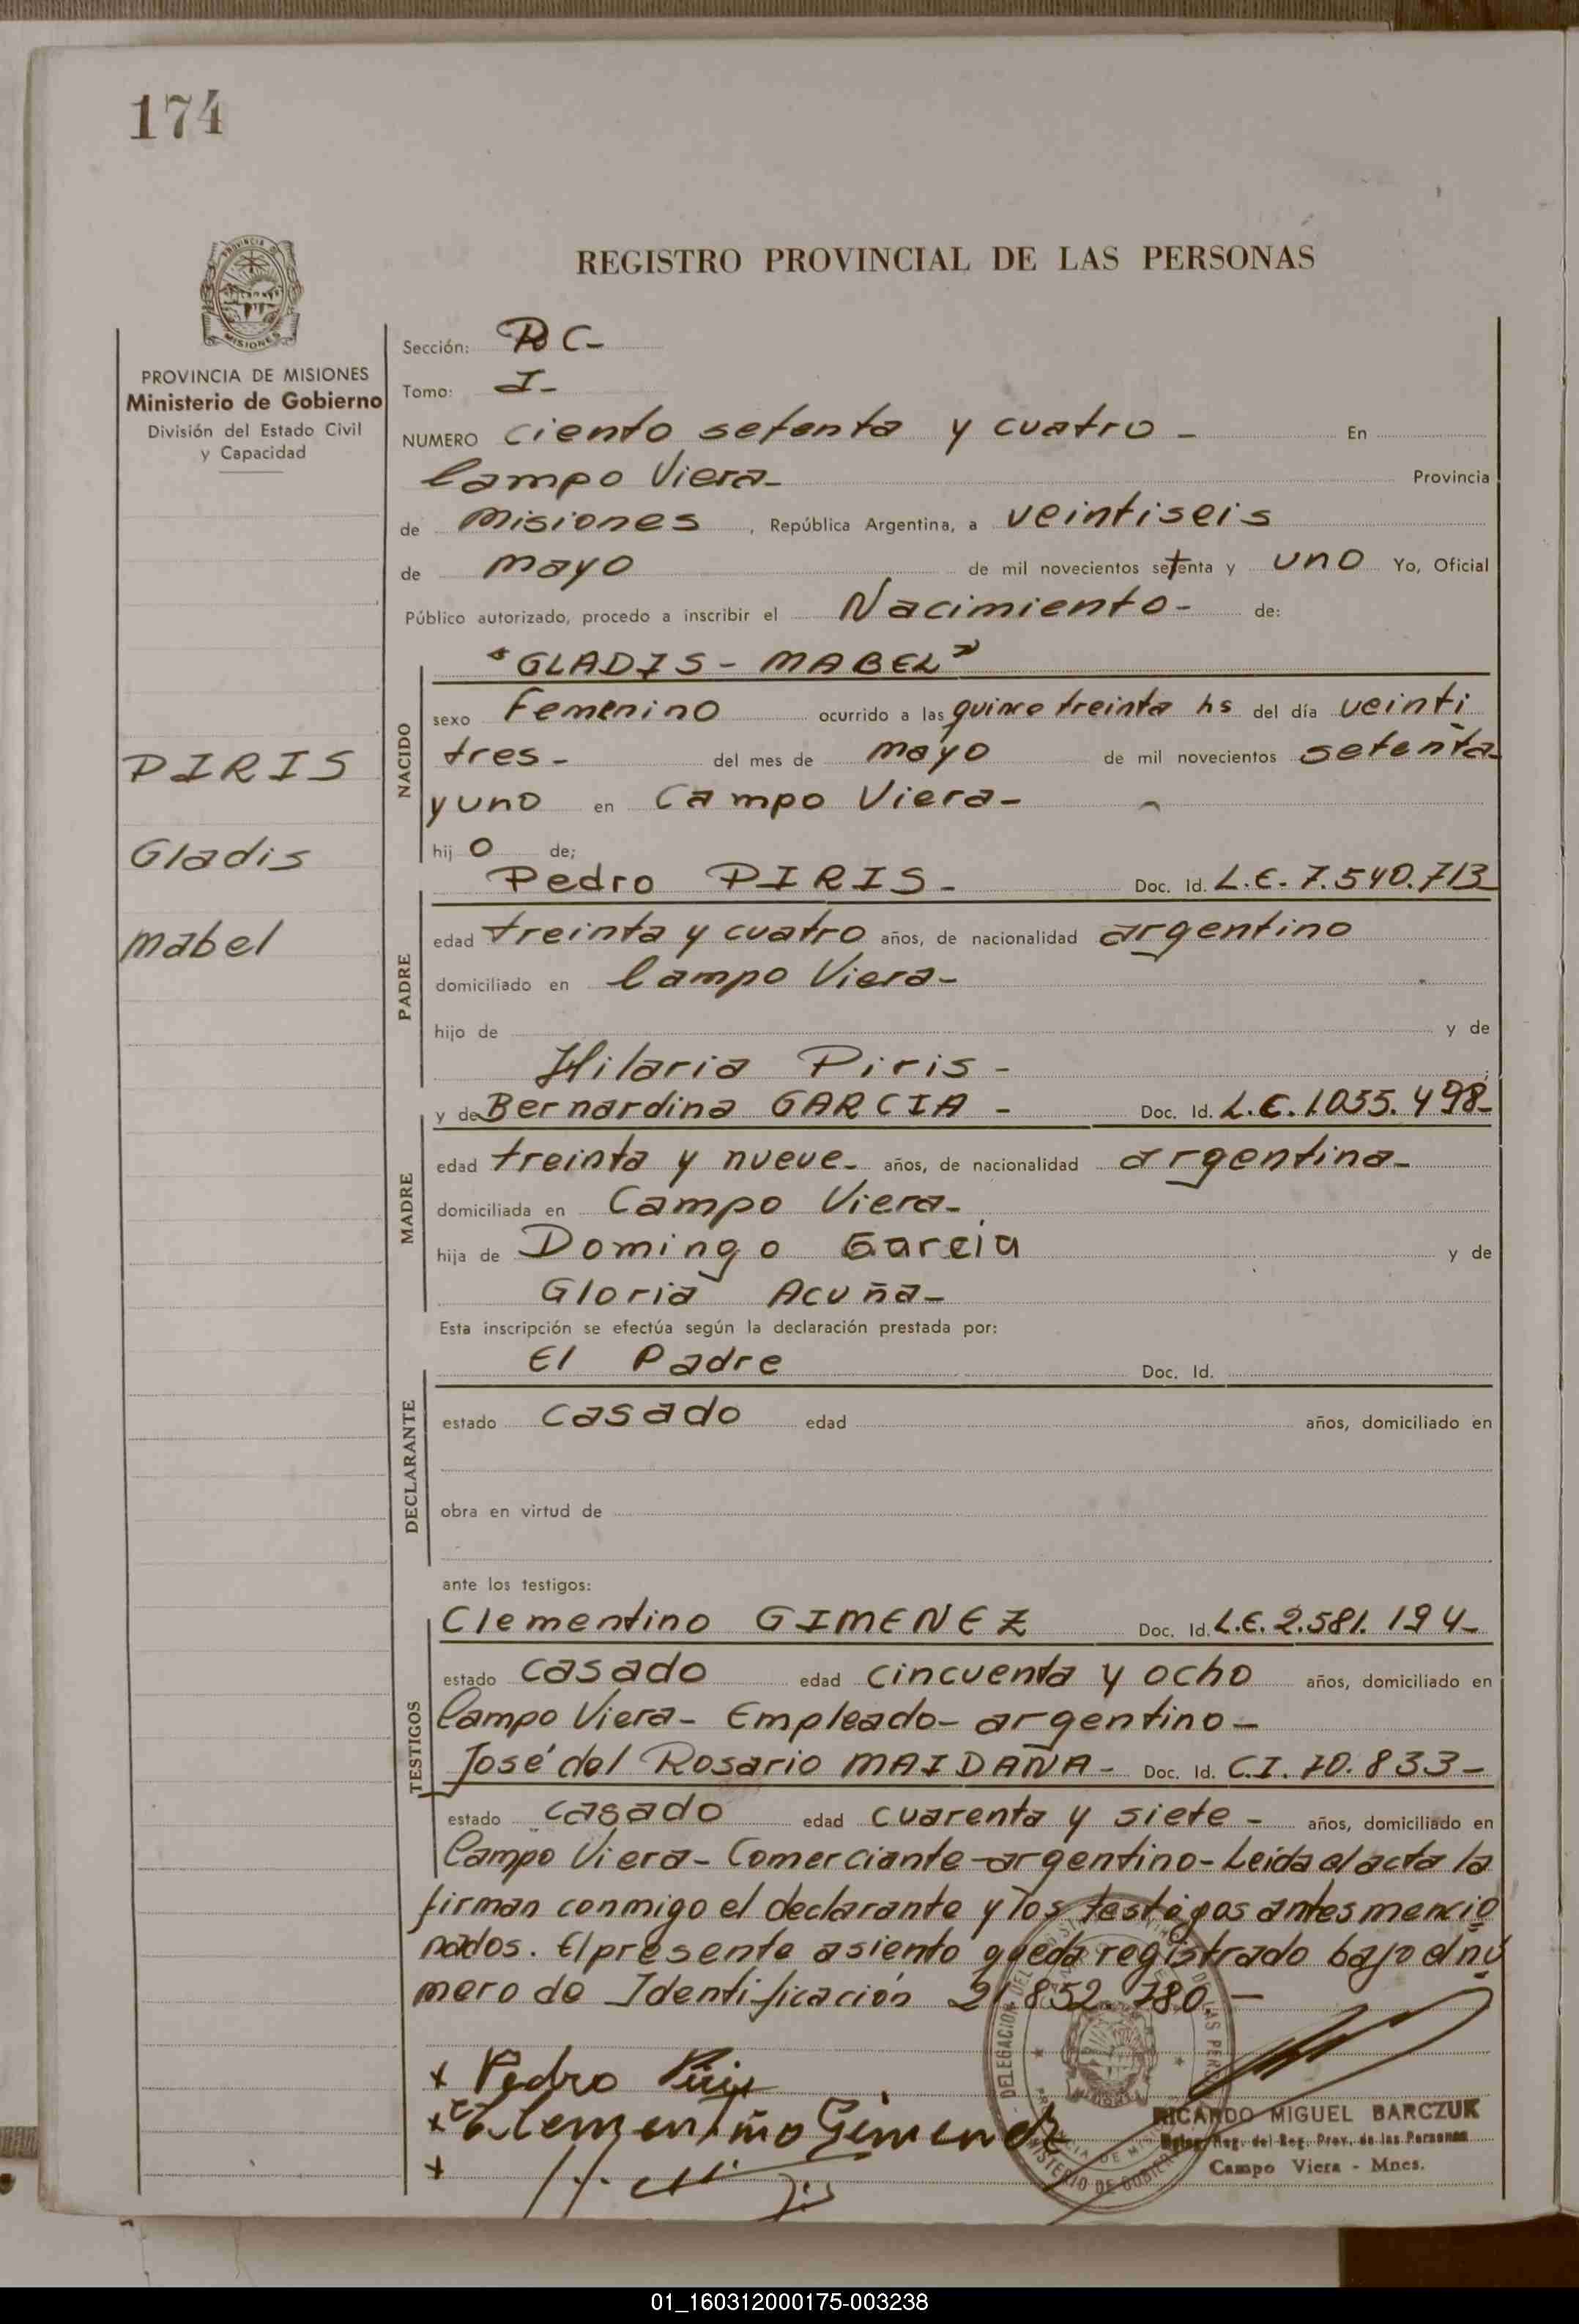 174
REGISTRO PROVINCIAL DE LAS PERSONAS
PROVINCIA DE MISIONES
Ministerio de Gobierno
División del Estado Civil
y Capacidad
PIRIS
Gladis
Mabel
Sección: RC-
Tomo: I-
NUMERO ciento setenta y cuatro - En
Campo Viera- Provincia
de Misiones, República Argentina, a veintiseis
de mayo de mil novecientos setenta y uno Yo, Oficial
Público autorizado, procedo a inscribir el Nacimiento- de:
"GLADIS - MABEL"
NACIDO
sexo Femenino ocurrido a las quince treinta hs del día veinti
tres- del mes de mayo de mil novecientos setenta-
y uno en Campo Viera-
hij o de;
Pedro PIRIS- Doc. Id. L.E. 7.540.713
PADRE
edad treinta y cuatro años, de nacionalidad argentino
domiciliado en Campo Viera-
hijo de y de
Hilaria Piris-
y de Bernardina GARCIA- Doc. Id. L.E. 1.055.498-
MADRE
edad treinta y nueve- años, de nacionalidad argentina-
domiciliada en Campo Viera-
hija de Domingo Garcia y de
Gloria Acuña-
Esta inscripción se efectúa según la declaración prestada por:
El Padre Doc. Id.
DECLARANTE
estado casado edad años, domiciliado en
obra en virtud de
ante los testigos:
Clementino GIMENEZ Doc. Id. L.E. 2.581.194-
TESTIGOS
estado casado edad cincuenta y ocho años, domiciliado en
Campo Viera- Empleado- argentino-
José del Rosario MAIDAÑA- Doc. Id. C.I. 70.833-
estado casado edad cuarenta y siete- años, domiciliado en
Campo Viera- Comerciante-argentino- Leida el acta la
firman conmigo el declarante y los testigos antes mencio
nados. El presente asiento queda registrado bajo el nú
mero de Identificación 21.852.780.-
+ Pedro Piris
+ Clementino Gimenez
+
RICARDO MIGUEL BARCZUK
Deleg. Reg. del Reg. Prov. de las Personas
Campo Viera - Mnes.
01_160312000175-003238